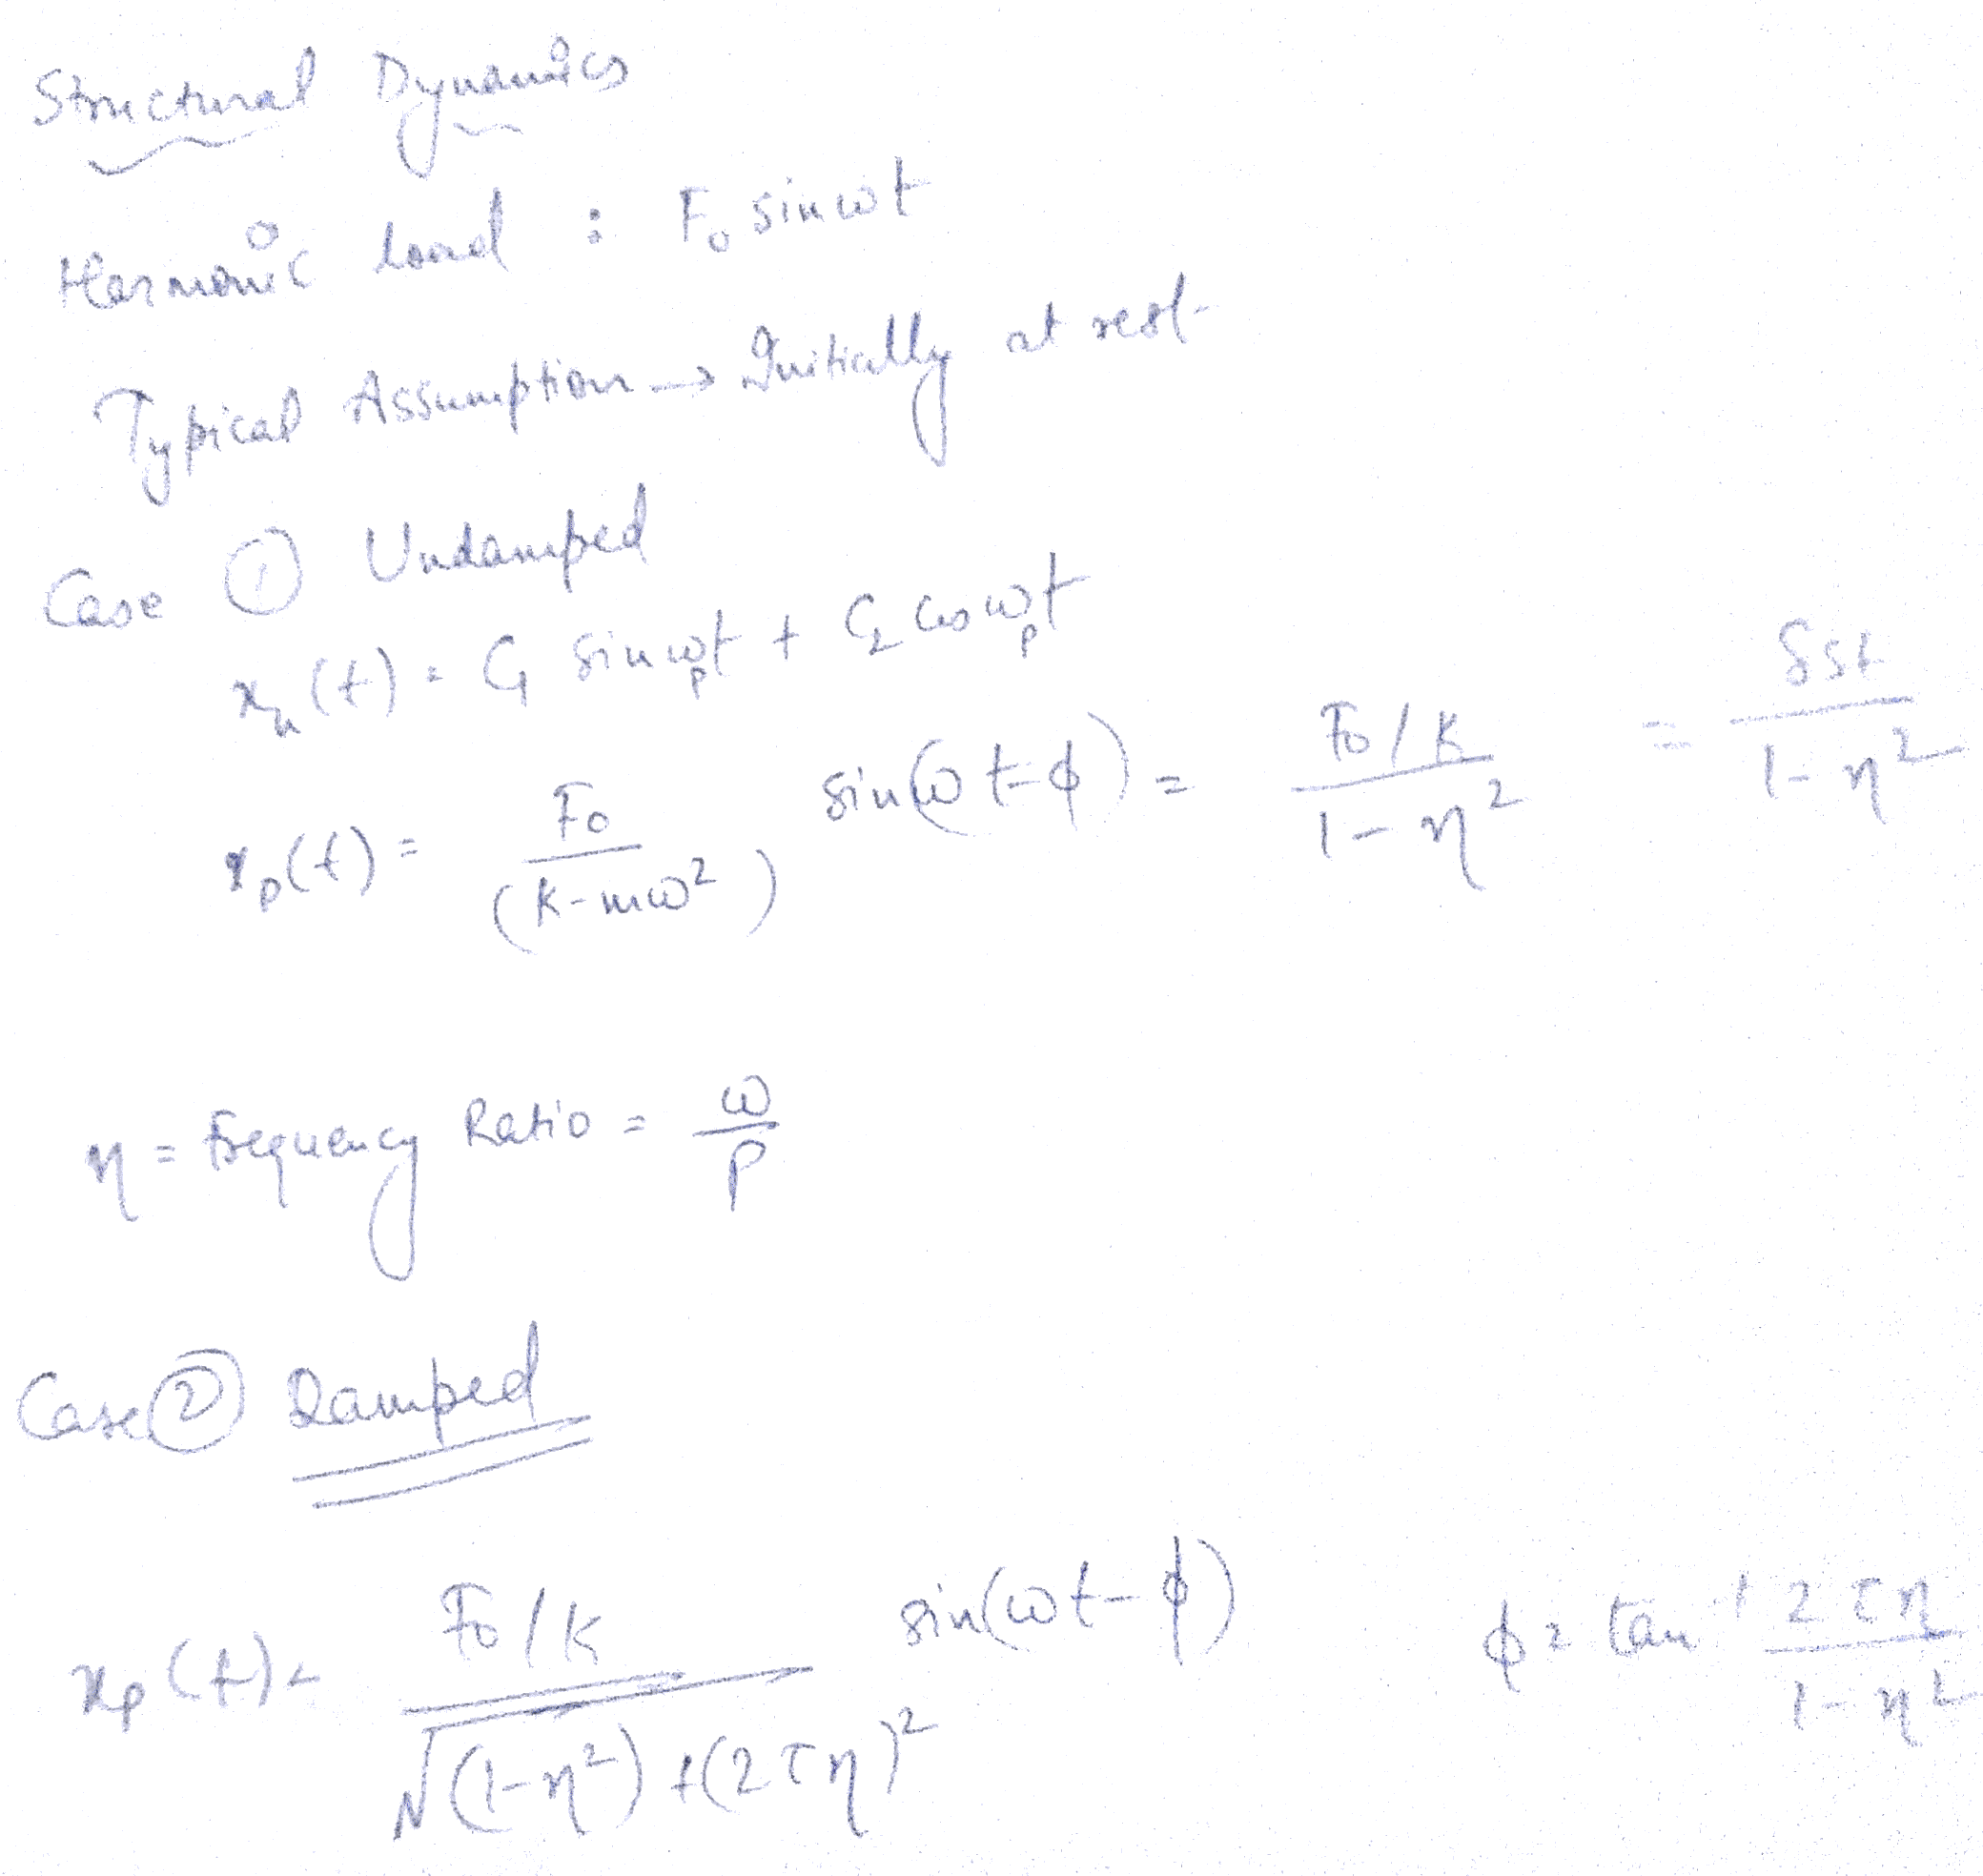 Structural Dynamics
Harmonic Load : F₀ sinωt
Typical Assumption → Initially at rest
Case ① Undamped
xₕ(t) = C₁ sin ωₚt + C₂ cos ωₚt
xₚ(t) = F₀ / (K - mω²) sin(ωt - ϕ) = (F₀/K) / (1 - η²) = δst / (1 - η²)
η = Frequency Ratio = ω / p
Case ② Damped
xₚ(t) = (F₀/K) / √((1-η²) + (2τη)²) sin(ωt - ϕ) ϕ = tan⁻¹ 2τη / (1 - η²)